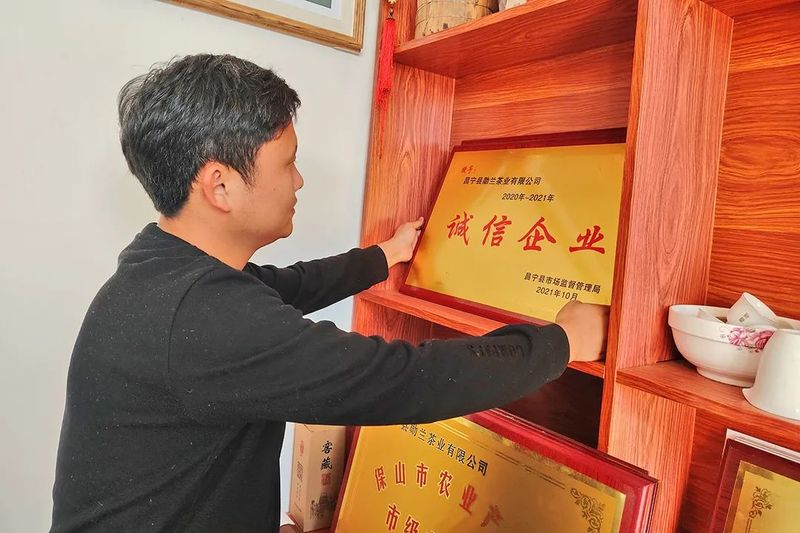 授予：
昌宁县勐兰茶业有限公司
2020年-2021年
诚信企业
昌宁县市场监督管理局
2021年10月
县勐兰茶业有限公司
保山市农业产
市级
窖藏